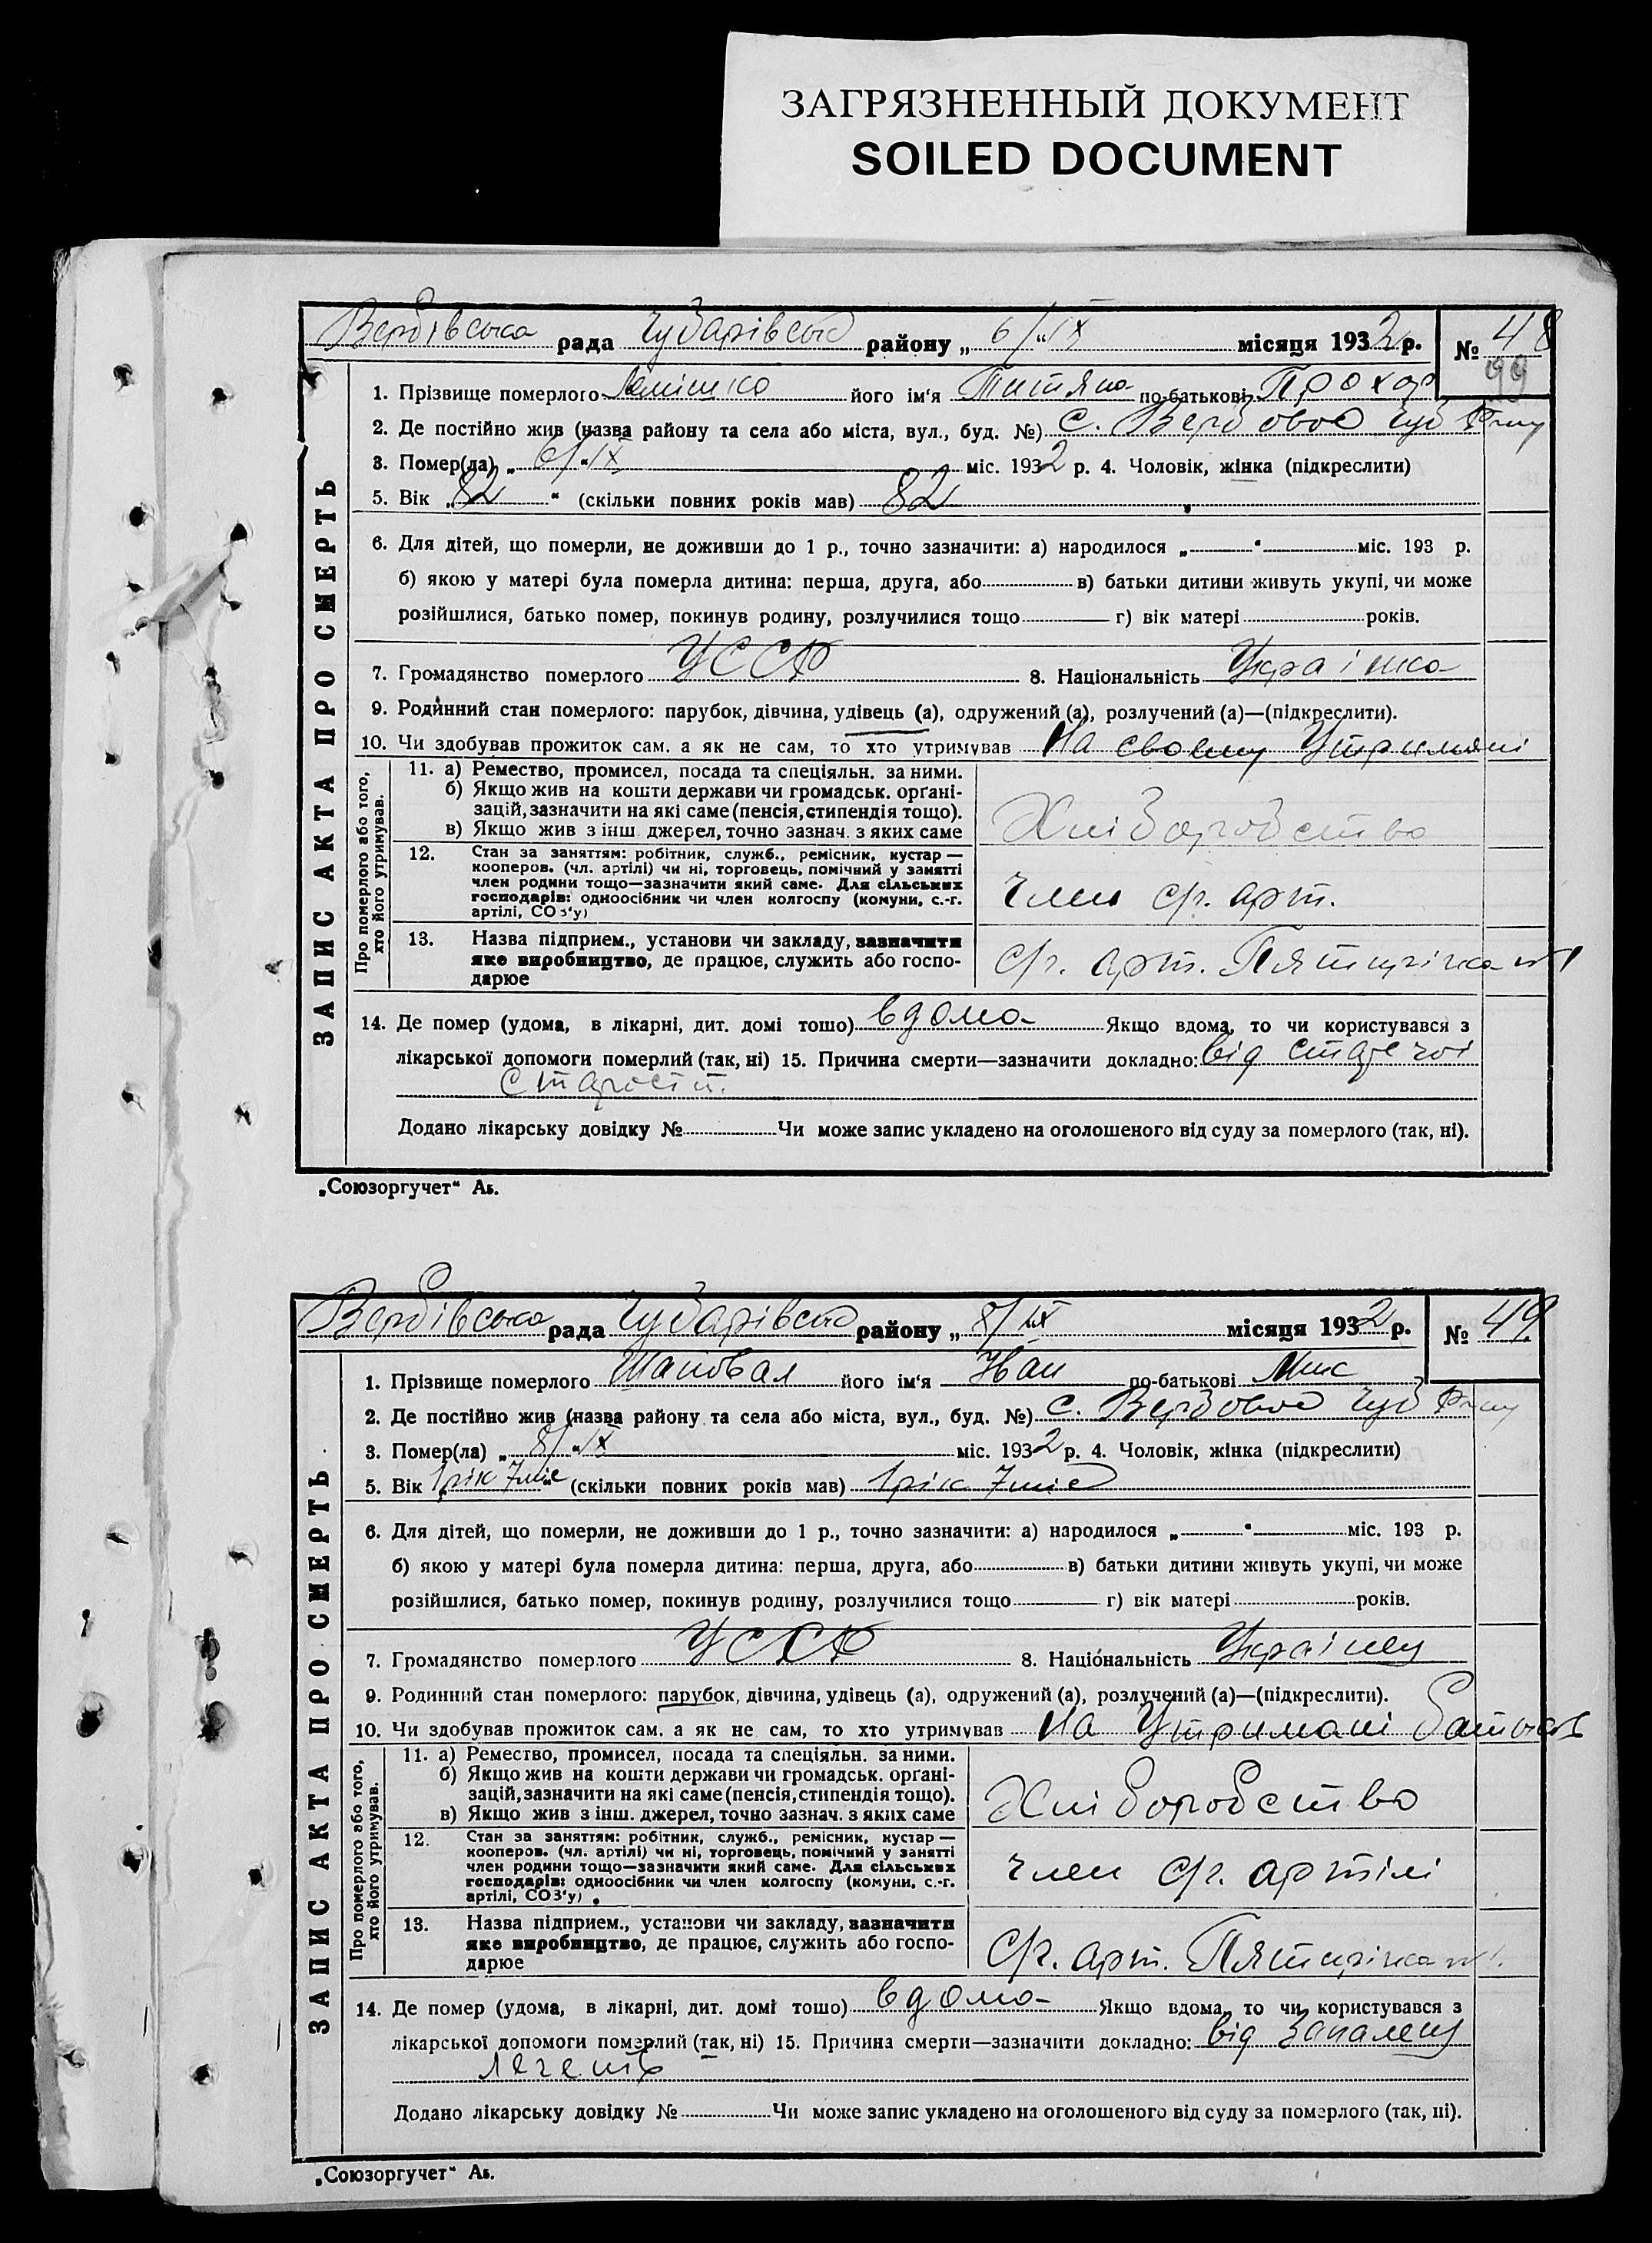 ЗАГРЯЗНЕННЫЙ ДОКУМЕНТ
SOILED DOCUMENT
Вербівська рада Чубарівськ району „ 6/ “ IX місяця 1932 р. № 48
99
1. Прізвище померлого його ім‘я Титяна по-батькові Прохор
2. Де постійно жив (назва району та села або міста, вул., буд. №) с. Вербовое Чуб р-ну
3. Помер(ла) „ 6/ “ IX міс. 1932 р. 4. Чоловік, жінка (підкреслити)
5. Вік „ 82 “ (скільки повних років мав) 82
6. Для дітей, що померли, не доживши до 1 р., точно зазначити: а) народилося „ “ міс. 193 р.
б) якою у матері була померла дитина: перша, друга, або в) батьки дитини живуть укупі, чи може
розійшлися, батько помер, покинув родину, розлучилися тощо г) вік матері років.
7. Громадянство померлого УССР 8. Національність Українка
9. Родинний стан померлого: парубок, дівчина, удівець (а), одружений (а), розлучений (а)—(підкреслити).
10. Чи здобував прожиток сам. а як не сам, то хто утримував На своєму Утримані
ЗАПИС АКТА ПРО СМЕРТЬ
Про померлого або того, хто його утримував.
11. а) Ремество, промисел, посада та спеціяльн. за ними.
б) Якщо жив на кошти держави чи громадськ. орґані-
зацій, зазначити на які саме (пенсія, стипендія тощо).
в) Якщо жив з інш. джерел, точно зазнач. з яких саме
Хліборобство
12. Стан за заняттям: робітник, служб., ремісник, кустар —
кооперов. (чл. артілі) чи ні, торговець, помічний у занятті
член родини тощо—зазначити який саме. Для сільських
господарів: одноосібник чи член колгоспу (комуни, с.-г.
артілі, СОЗ‘у)
член с/г. арт.
13. Назва підприєм., установи чи закладу, зазначити
яке виробництво, де працює, служить або госпо-
дарює
с/г. арт. Пятирічка
14. Де помер (удома, в лікарні, дит. домі тошо) вдома Якщо вдома, то чи користувався з
лікарської допомоги померлий (так, ні) 15. Причина смерти—зазначити докладно: від
старости.
Додано лікарську довідку № Чи може запис укладено на оголошеного від суду за померлого (так, ні).
„Союзоргучет“ Аь.
Вербівська рада Чубарівськ району „ 8/ IX місяця 1932 р. № 49
1. Прізвище померлого Шаповал його ім‘я Іван по-батькові Мик
2. Де постійно жив (назва району та села або міста, вул., буд. №) с. Вербовое Чуб р-ну
3. Помер(ла) „ 8/ “ IX міс. 1932 р. 4. Чоловік, жінка (підкреслити)
5. Вік „ 1 рік 7 міс “ (скільки повних років мав) 1 рік 7 міс
6. Для дітей, що померли, не доживши до 1 р., точно зазначити: а) народилося „ “ міс. 193 р.
б) якою у матері була померла дитина: перша, друга, або в) батьки дитини живуть укупі, чи може
розійшлися, батько помер, покинув родину, розлучилися тощо г) вік матері років.
7. Громадянство померлого УССР 8. Національність Українец
9. Родинний стан померлого: парубок, дівчина, удівець (а), одружений (а), розлучений (а)—(підкреслити).
10. Чи здобував прожиток сам. а як не сам, то хто утримував На Утримані батьків
ЗАПИС АКТА ПРО СМЕРТЬ
Про померлого або того, хто його утримував.
11. а) Ремество, промисел, посада та спеціяльн. за ними.
б) Якщо жив на кошти держави чи громадськ. орґані-
зацій, зазначити на які саме (пенсія, стипендія тощо).
в) Якщо жив з інш. джерел, точно зазнач. з яких саме
Хліборобство
12. Стан за заняттям: робітник, служб., ремісник, кустар —
кооперов. (чл. артілі) чи ні, торговець, помічний у занятті
член родини тощо—зазначити який саме. Для сільських
господарів: одноосібник чи член колгоспу (комуни, с.-г.
артілі, СОЗ‘у)
член с/г. артілі
13. Назва підприєм., установи чи закладу, зазначити
яке виробництво, де працює, служить або госпо-
дарює
с/г. арт. Пятирічка
14. Де помер (удома, в лікарні, дит. домі тошо) вдома Якщо вдома, то чи користувався з
лікарської допомоги померлий (так, ні) 15. Причина смерти—зазначити докладно: від запалену
легенів
Додано лікарську довідку № Чи може запис укладено на оголошеного від суду за померлого (так, ні).
„Союзоргучет“ Аь.